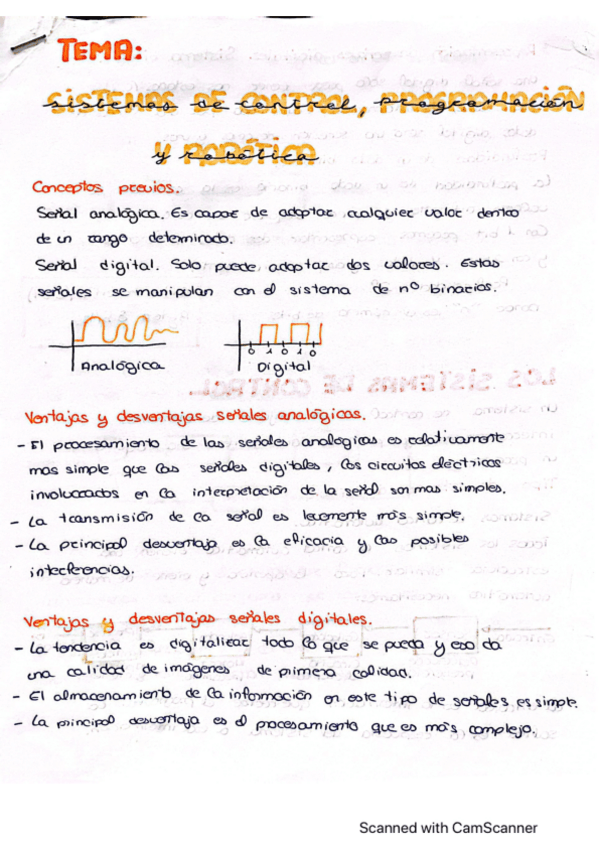 TEMA:
SISTEMAS DE CONTROL, PROGRAMACIÓN
sistemas de control, programación
Y ROBÓTICA
y robótica
Conceptos previos.
Señal analógica. Es capaz de adoptar cualquier valor dentro
de un rango determinado.
Señal digital. Solo puede adoptar dos valores. Estas
señales se manipulan con el sistema de nº binarios.
0 1 0 1 0
Analógica
Digital
LOS SISTEMAS DE CONTROL
Ventajas y desventajas señales analógicas.
- El procesamiento de las señales analógicas es relativamente
mas simple que las señales digitales, los circuitos eléctricos
involucrados en la interpretación de la señal son mas simples.
- La transmisión de la señal es levemente más simple.
- La principal desventaja es la eficacia y las posibles
interferencias.
Ventajas y desventajas señales digitales.
- La tendencia es digitalizar todo lo que se pueda y eso da
una calidad de imágenes de primera calidad.
- El almacenamiento de la información en este tipo de señales, es simple.
- La principal desventaja es el procesamiento que es más complejo.
Scanned with CamScanner